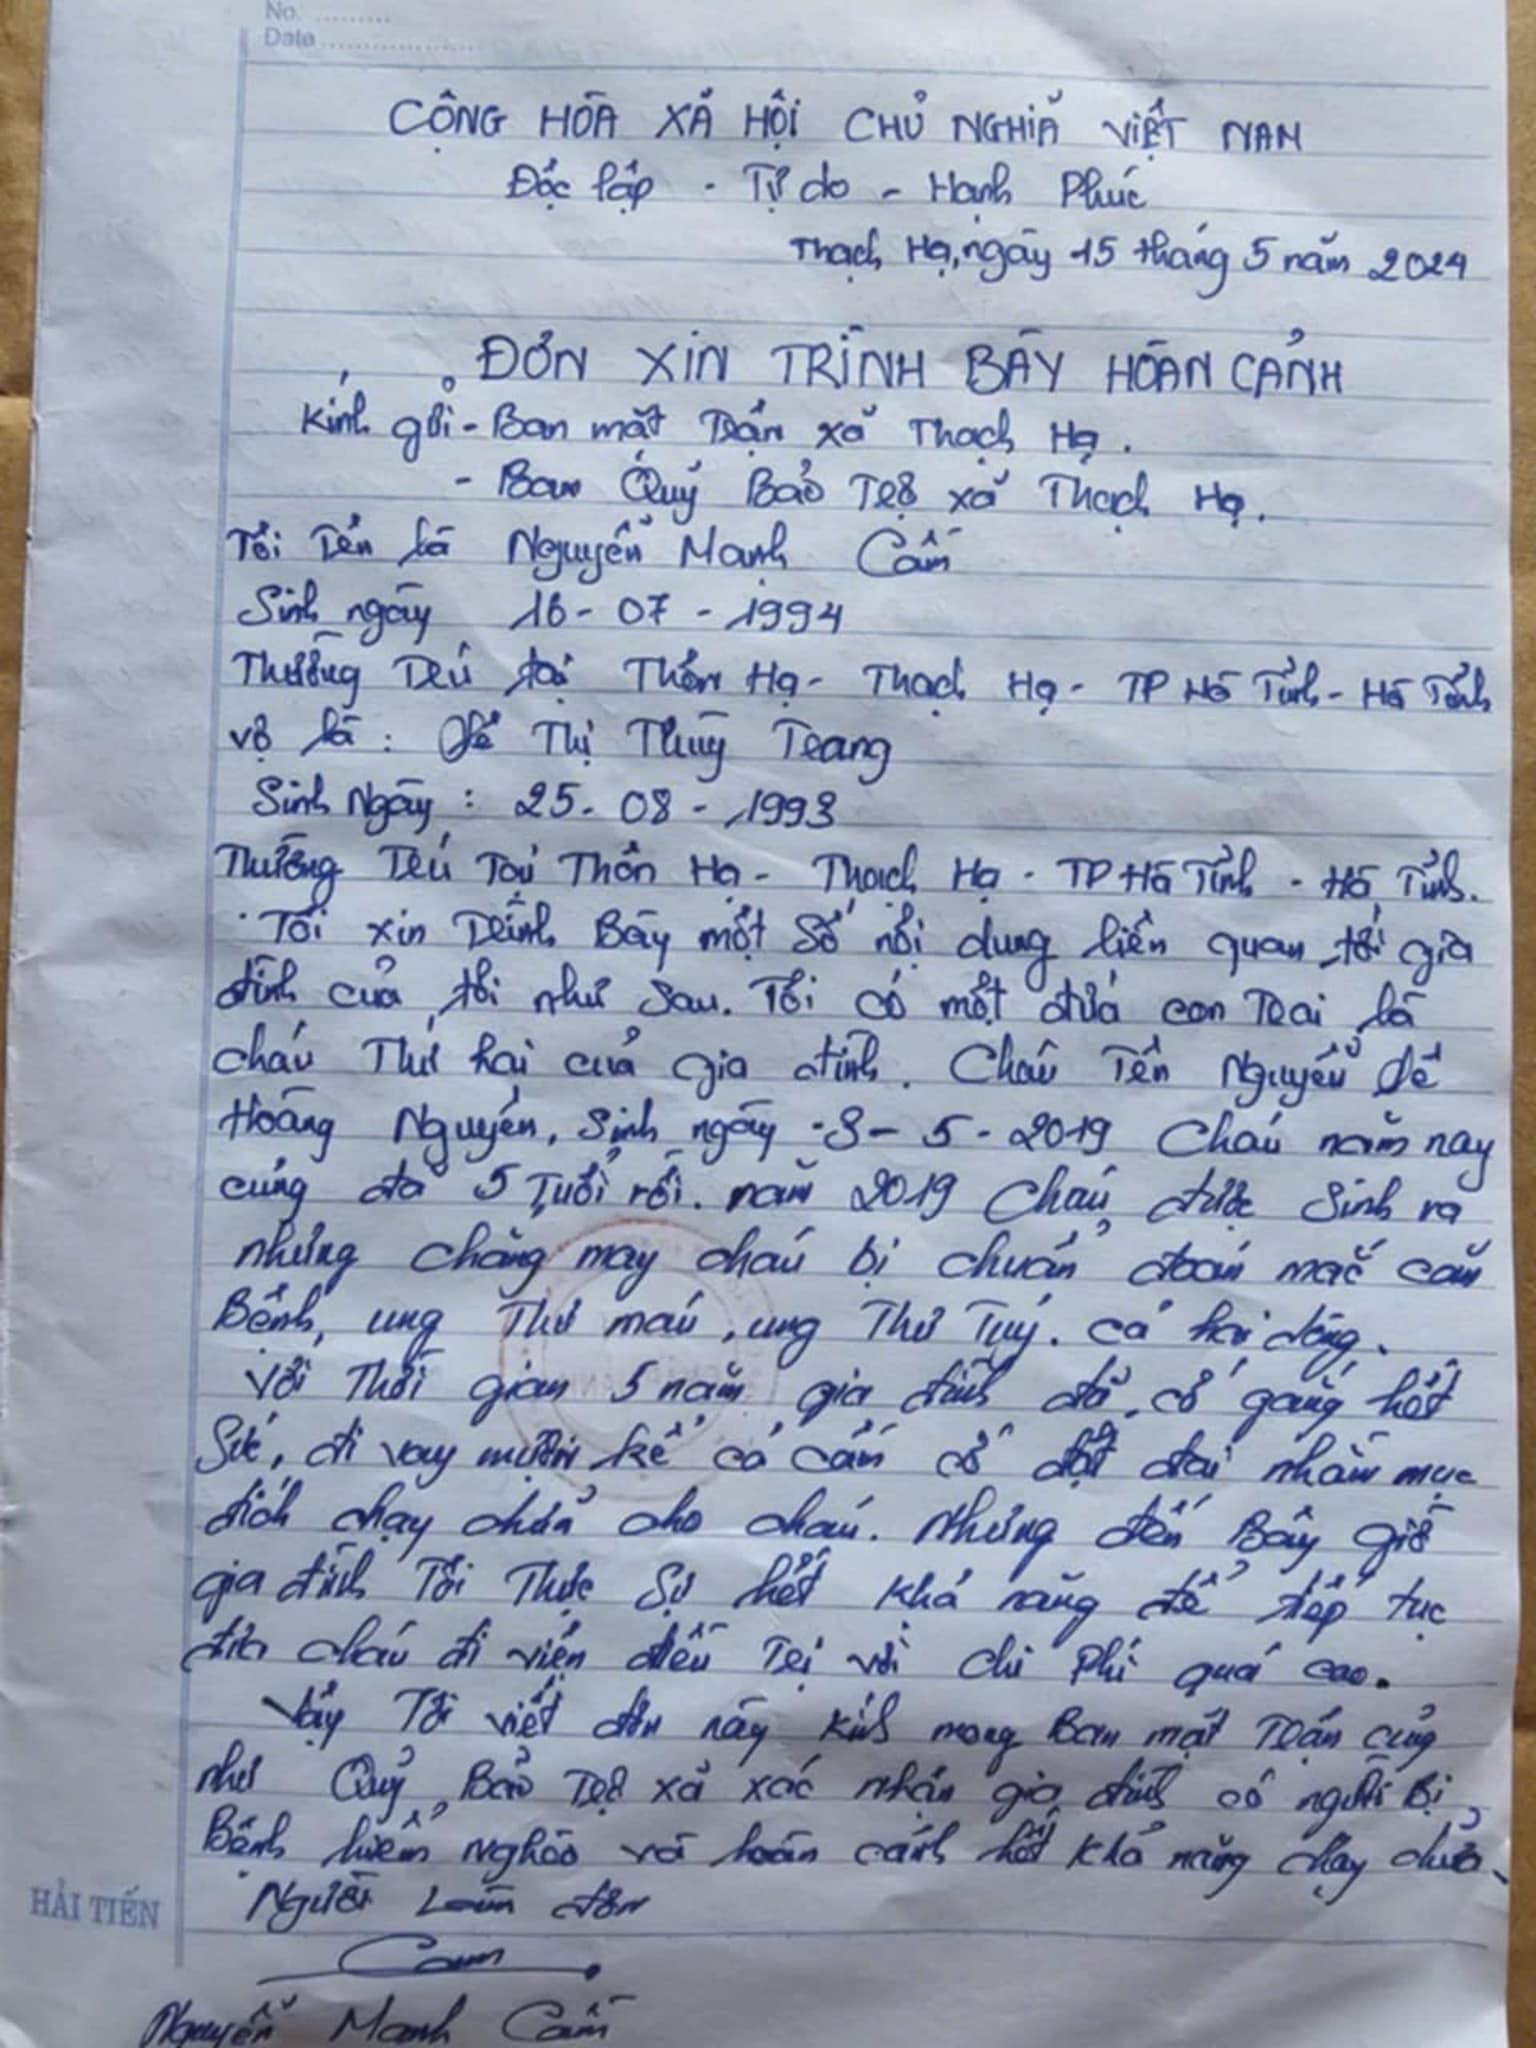 No. ..........
Date ....................
CỘNG HÒA XÃ HỘI CHỦ NGHĨA VIỆT NAM
Độc lập - Tự do - Hạnh Phúc
Thạch Hạ, ngày 15 tháng 5 năm 2024
ĐƠN XIN TRÌNH BÀY HOÀN CẢNH
Kính gửi - Ban mặt Trận xã Thạch Hạ.
- Ban Quỹ Bảo Trợ xã Thạch Hạ.
Tôi Tên là Nguyễn Mạnh Cầm
Sinh ngày 16 - 07 - 1994
Thường Trú tại Thôn Hạ - Thạch Hạ - TP Hà Tĩnh - Hà Tĩnh
vợ là : Lê Thị Thùy Trang
Sinh Ngày : 25 - 08 - 1993
Thường Trú Tại Thôn Hạ - Thạch Hạ - TP Hà Tĩnh - Hà Tĩnh.
Tôi xin Trình Bày một Số nội dung liên quan tới gia
đình của tôi như sau. Tôi có một đứa con Trai là
cháu Thứ hai của gia đình. Cháu Tên Nguyễn Lê
Hoàng Nguyên, Sinh ngày 3 - 5 - 2019 Cháu năm nay
cũng đã 5 Tuổi rồi. năm 2019 Cháu được Sinh ra
nhưng chẳng may cháu bị chuẩn đoán mắc căn
Bệnh, ung Thư máu, ung Thư Tủy. cả hai dòng.
Với Thời gian 5 năm gia đình đã cố gắng hết
Sức, đi vay mượn kể cả cầm cố đất đai nhằm mục
đích chạy chữa cho cháu. Nhưng đến Bây giờ
gia đình Tôi Thực Sự hết khả năng để tiếp tục
đưa cháu đi viện điều Trị với chi Phí quá cao.
Vậy Tôi viết đơn này kính mong Ban mặt Trận cũng
như Quỹ Bảo Trợ xã xác nhận gia đình có người Bị
Bệnh hiểm nghèo và hoàn cảnh hết khả năng chạy chữa.
Người Làm đơn
Cầm
Nguyễn Mạnh Cầm
HẢI TIẾN